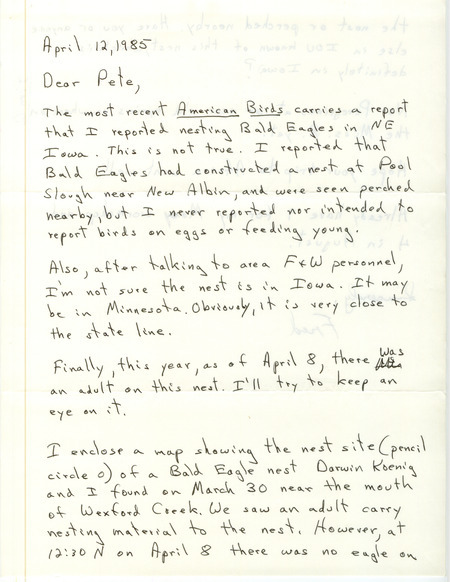 April 12, 1985
Dear Pete,
The most recent American Birds carries a report
that I reported nesting Bald Eagles in NE
Iowa. This is not true. I reported that
Bald Eagles had constructed a nest at Pool
Slough near New Albin, and were seen perched
nearby, but I never reported nor intended to
report birds on eggs or feeding young.
Also, after talking to area F&W personnel,
I'm not sure the nest is in Iowa. It may
be in Minnesota. Obviously, it is very close to
the state line.
Finally, this year, as of April 8, there was
an adult on this nest. I'll try to keep an
eye on it.
I enclose a map showing the nest site (pencil
circle o) of a Bald Eagle nest Darwin Koenig
and I found on March 30 near the mouth
of Wexford Creek. We saw an adult carry
nesting material to the nest. However, at
12:30 N on April 8 there was no eagle on